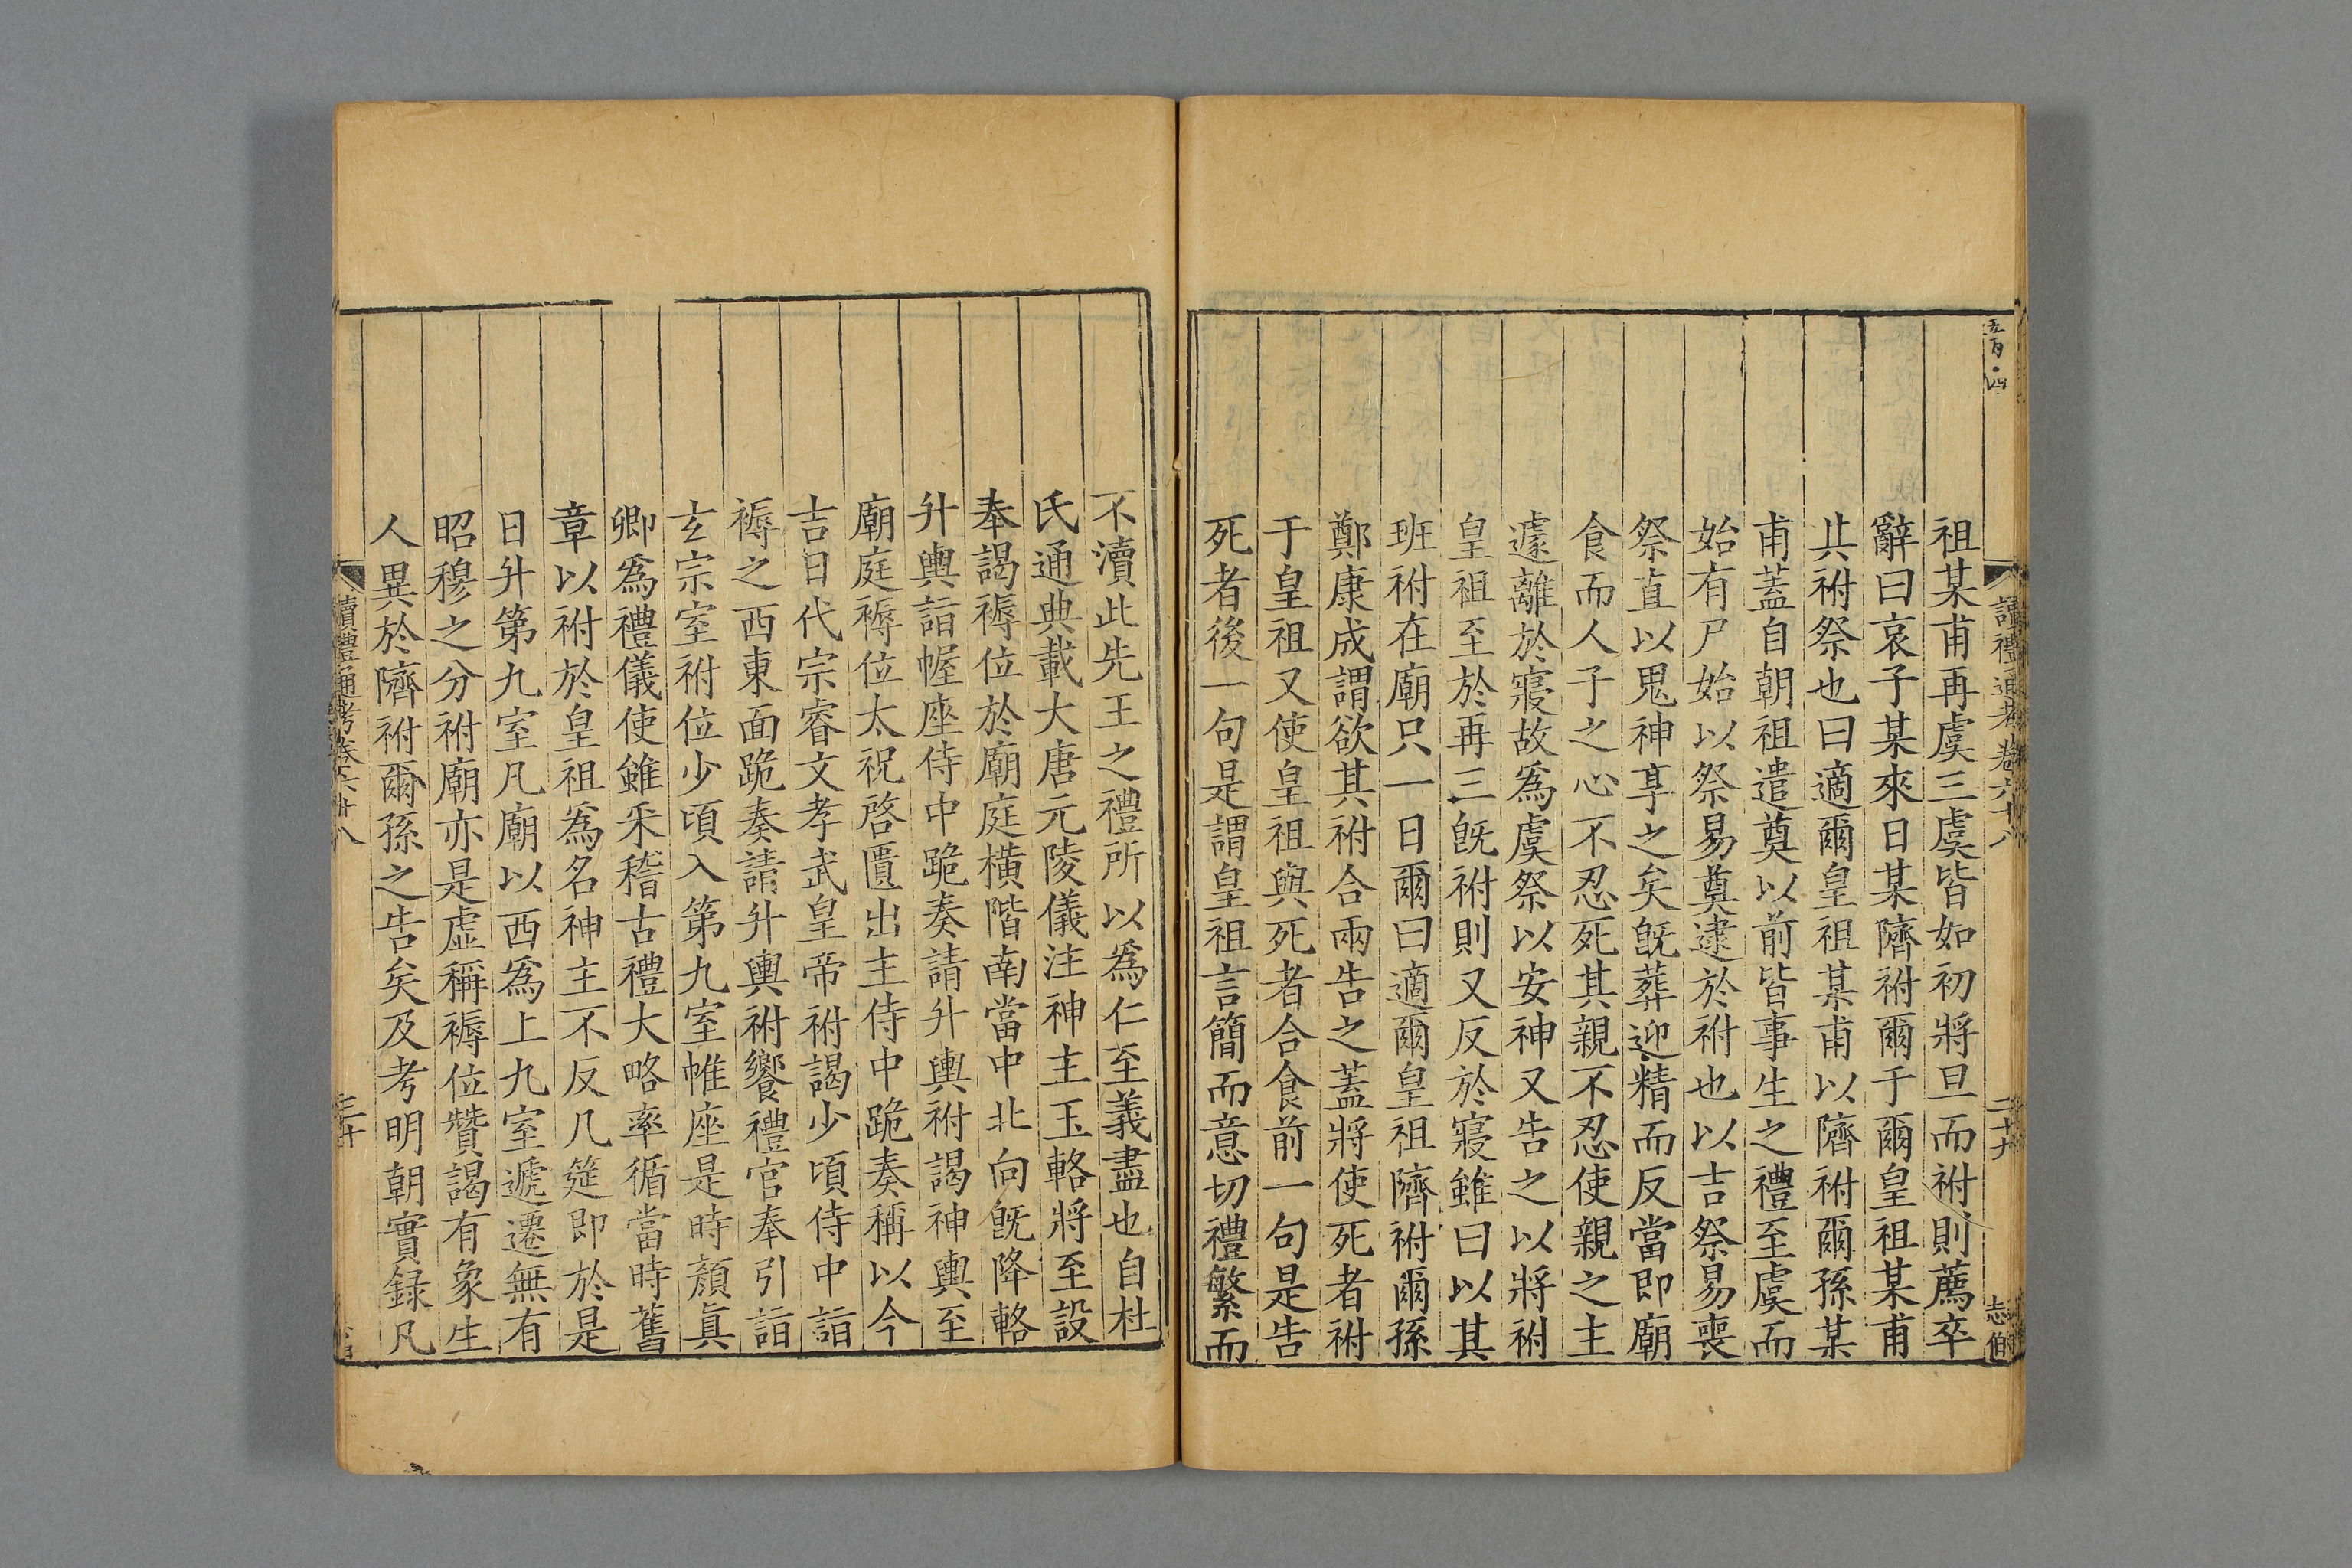 五百四
讀禮通考卷六十八
二十九
志伯
祖某甫再虞三虞皆如初將旦而祔則薦卒
辭曰哀子某來日某隮祔爾于爾皇祖某甫
其祔祭也曰適爾皇祖某甫以隮祔爾孫某
甫蓋自朝祖遣奠以前皆事生之禮至虞而
始有尸始以祭易奠逮於祔也以吉祭易喪
祭直以鬼神享之矣旣葬迎精而反當即廟
食而人子之心不忍死其親不忍使親之主
遽離於寢故爲虞祭以安神又告之以將祔
皇祖至於再三旣祔則又反於寢雖曰以其
班祔在廟只一日爾曰適爾皇祖隮祔爾孫
鄭康成謂欲其祔合兩告之蓋將使死者祔
于皇祖又使皇祖與死者合食前一句是告
死者後一句是謂皇祖言簡而意切禮繁而
不瀆此先王之禮所以爲仁至義盡也自杜
氏通典載大唐元陵儀注神主玉輅將至設
奉謁褥位於廟庭橫階南當中北向旣降輅
升輿詣幄座侍中跪奏請升輿祔謁神輿至
廟庭褥位太祝啓匱出主侍中跪奏稱以今
吉日代宗睿文孝武皇帝祔謁少頃侍中詣
褥之西東面跪奏請升輿祔饗禮官奉引詣
玄宗室祔位少頃入第九室帷座是時顏眞
卿爲禮儀使雖采稽古禮大略率循當時舊
章以祔於皇祖爲名神主不反几筵即於是
日升第九室凡廟以西爲上九室遞遷無有
昭穆之分祔廟亦是虛稱褥位贊謁有象生
人異於隮祔爾孫之告矣及考明朝實録凡
讀禮通考卷六十八
三十